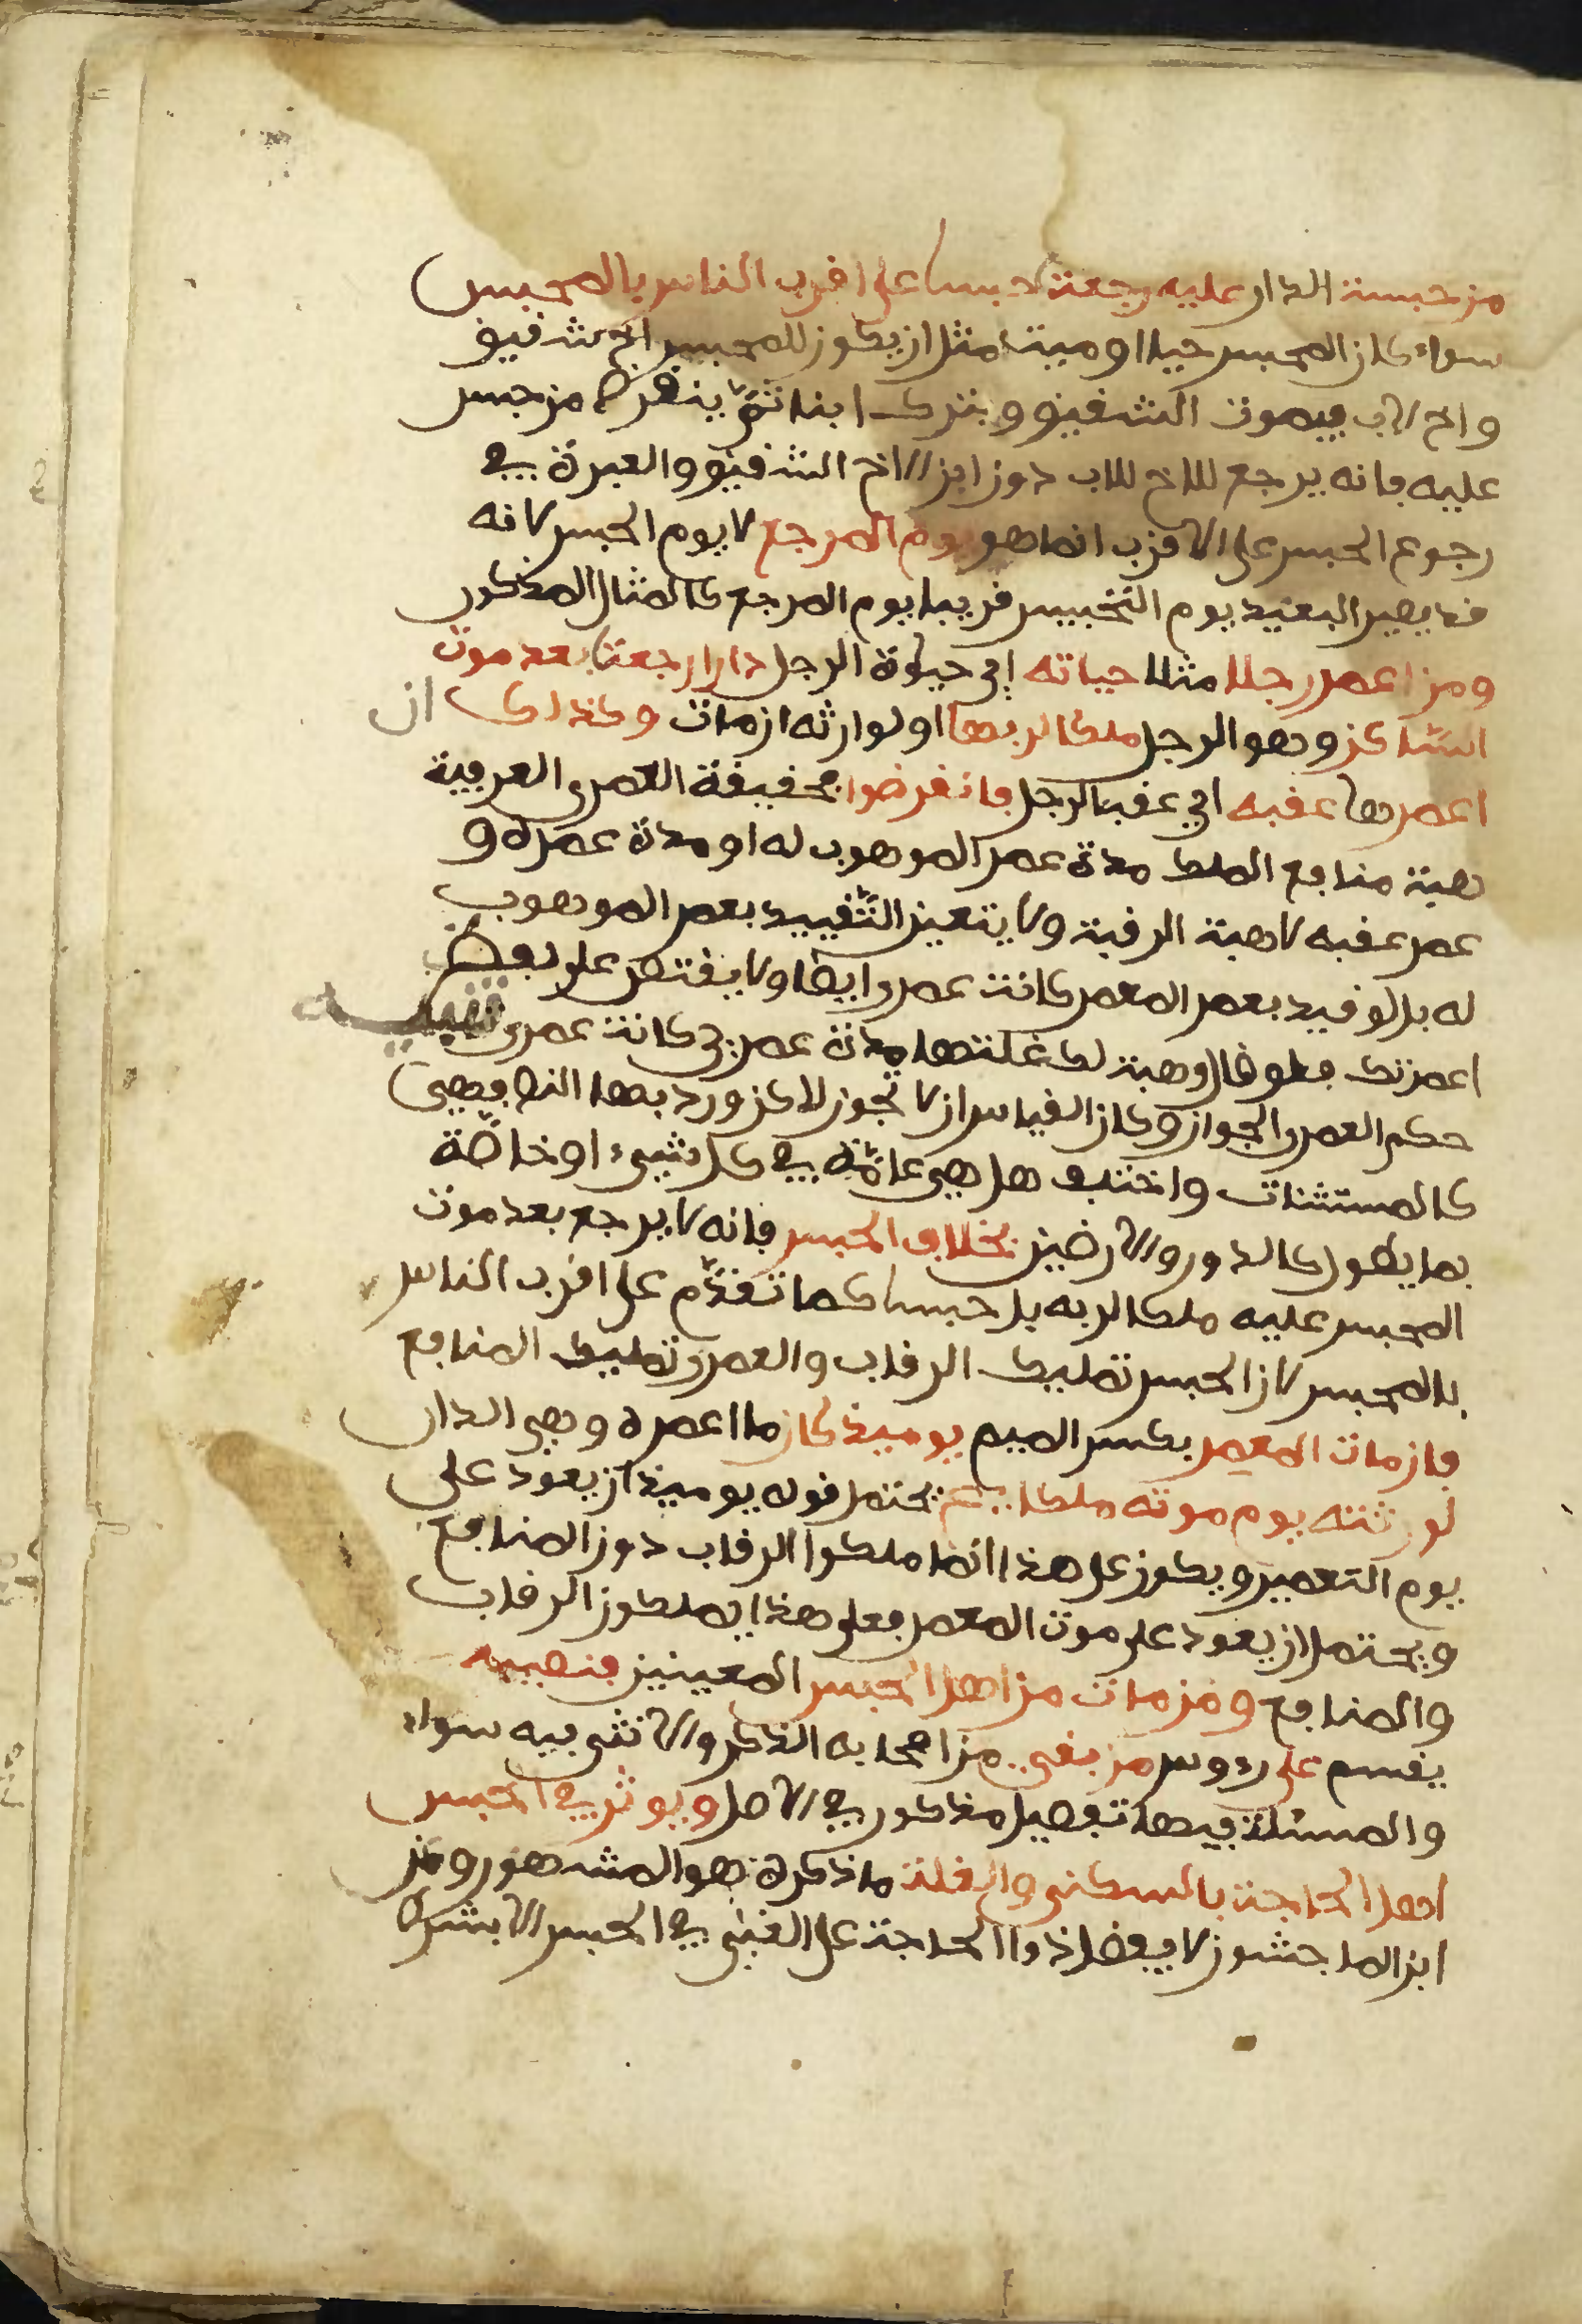 من حبست الدار عليه رجعت حبسا على اقرب الناس بالمحبس
سواء كان المحبس حيا او ميتا مثل ان يكون للمحبس اخ شقيق
واخ لاب فيموت الشقيق ويترك ابنا ثم ينقرض من حبس
عليه فانه يرجع للاخ للاب دون ابن الاخ الشقيق والعبرة في
رجوع الحبس على الاقرب انما هو يوم المرجع لا يوم الحبس لانه
قد يصير البعيد يوم التحبيس قريبا يوم المرجع كالمثال المذكور
ومن اعمر رجلا مثلا حياته اي حياة الرجل دارا رجعت بعد موت
الساكن وهو الرجل ملكا لربها او لوارثه ان مات وكذلك ان
اعمرها عقبه اي عقب الرجل فانقرضوا فحقيقة العمرى العرفية
هبة منافع الملك مدة عمر الموهوب له او مدة عمره و
عمر عقبه لا هبة الرقبة ولا يتعين التقييد بعمر الموهوب
له بل لو قيد بعمر المعمر كانت عمرى ايضا ولا يفتقر على لفظ
اعمرتك فلو قال وهبة لك غلتها مدة عمري كانت عمرى تنبيه
حكم العمرى الجواز وكان القياس ان لا تجوز لاكن ورد بها النص فهي
كالمستثنات واختلف هل هي عامة في كل شيء او خاصة
بما يطول كالدور والارضين بخلاف الحبس فانه لا يرجع بعد موت
المحبس عليه ملكا لربه بل حبسا كما تقدم على اقرب الناس
بالمحبس لان الحبس تمليك الرقاب والعمرى تمليك المنافع
فان مات المعمر بكسر الميم يوميذ كان ما اعمره وهي الدار
لورثته يوم موته ملكا يحتمل قوله يوميذ ان يعود على
يوم التعمير ويكون على هذا انما ملكوا الرقاب دون المنافع
ويحتمل ان يعود على موت المعمر فعلى هذا يملكون الرقاب
والمنافع ومن مات من اهل الحبس المعينين فنصيبه
يقسم على رءوس من بقي من اصحابه الذكر والانثى فيه سواء
والمسئلة فيها تفصيل مذكور في الاصل ويوثر في الحبس
اهل الحاجة بالسكنى والغلة ما ذكره هو المشهور وعن
ابن الماجشون لا يفضل ذوا الحاجة على الغني في الحبس الا بشرط